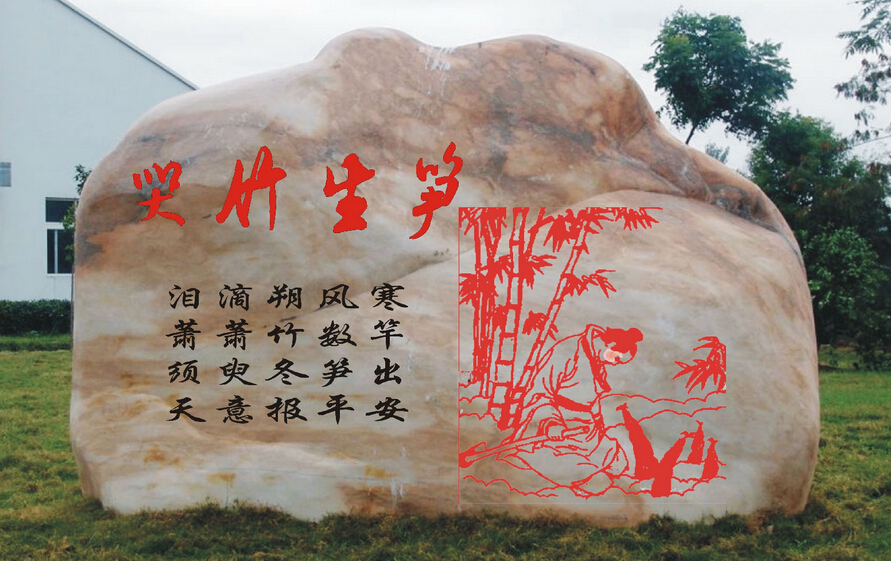 哭竹生笋
泪滴朔风寒
萧萧竹数竿
须臾冬笋出
天意报平安